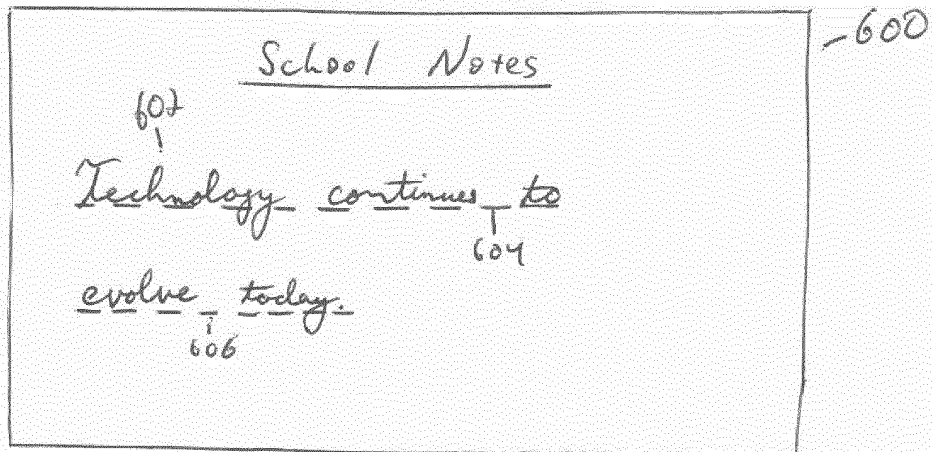 600
School Notes
602
Technology continues to
604
evolve today.
606